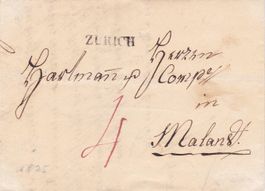 ZURICH
Herren
Hartmañ &
Comp.
in
Maland.
4
1825